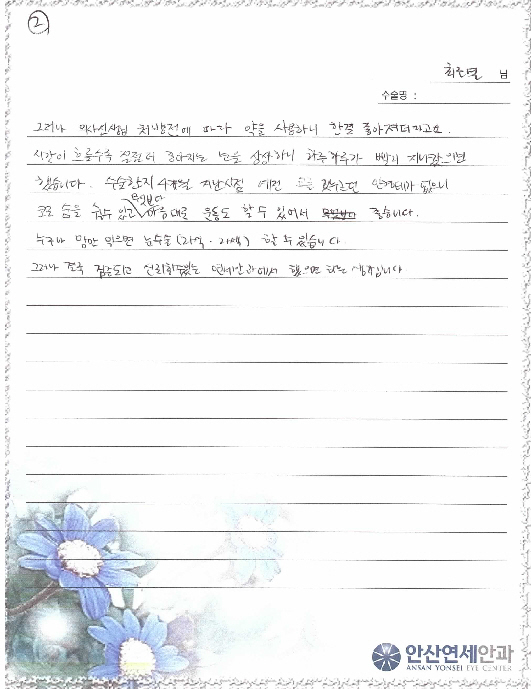 2
님
수술명 :
그러나 의사선생님 처방전에 따라 약을 사용하니 한결 좋아져더라고요.
시간이 흐를수록 설렘에 좋아지는 눈을 상상하니 하루하루가 빨리 지나갔으면
했습니다. 수술한지 4개월 지난시점 예전 코를 눌렀던 안경테가 없으니
코로 숨을 쉴수 있고 무엇보다 마음대로 운동도 할 수 있어서 좋습니다.
누구나 맘만 먹으면 눈수술 (라식·라섹) 할 수 있습니다.
그러나 전국 검증되고 신뢰할수있는 연세안과에서 했으면 하는 생각입니다
안산연세안과
ANSAN YONSEI EYE CENTER